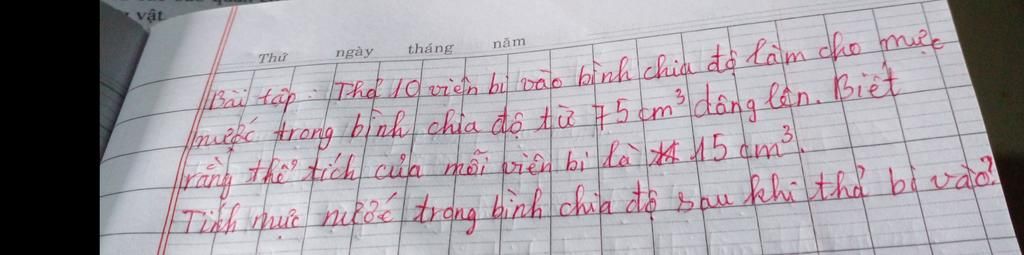 vật
Thứ ngày tháng năm
Bài tập: Thả 10 viên bi vào bình chia độ làm cho mực
nước trong bình chia độ từ 75 cm³ dâng lên. Biết
rằng thể tích của mỗi viên bi là 15 cm³.
Tính mực nước trong bình chia độ sau khi thả bi vào?